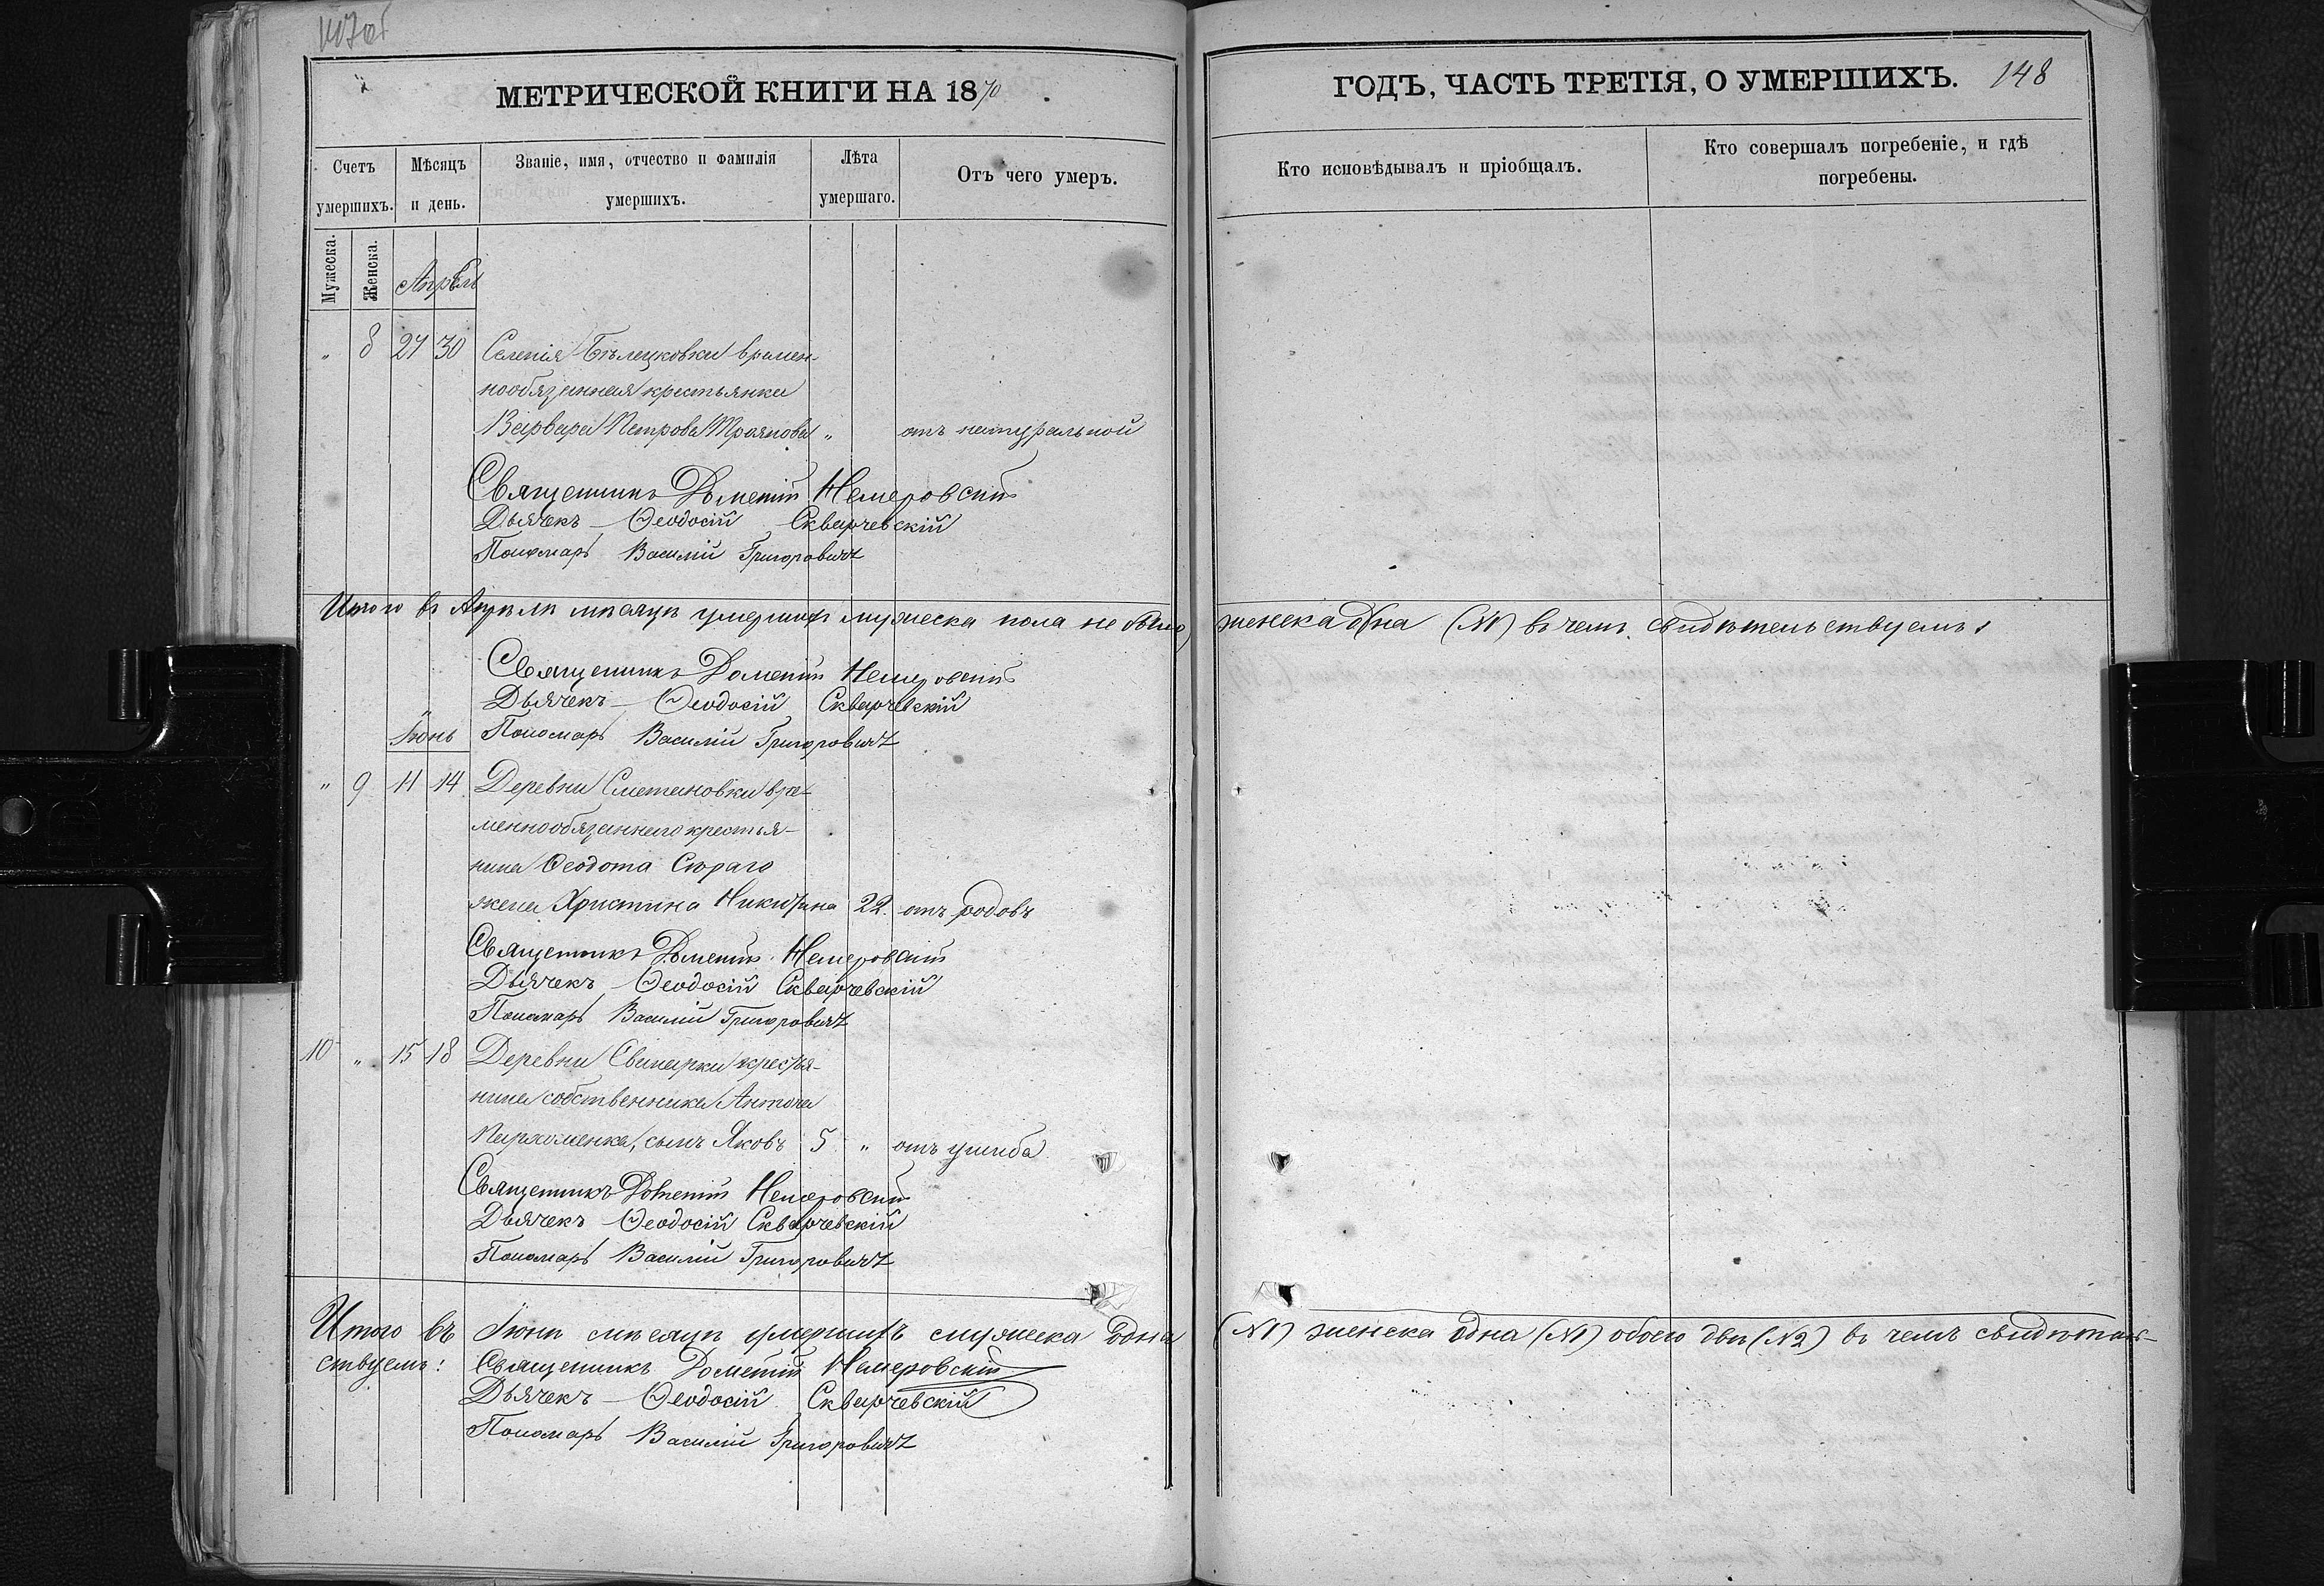 МЕТРИЧЕСКОЙ КНИГИ НА 1870
Счетъ умершихъ.
Мѣсяцъ и день.
Званіе, имя, отчество и фамилія умершихъ.
Лѣта умершаго.
Отъ чего умеръ.
Мужеска.
Женска.
Апрѣль
" 8 27 30 Селенія Бѣлецковки времен-
нообязанная крестьянка
Варвара Петрова Троянова " отъ натуральной
Священникъ Дометій Немеровскій
Дьячекъ – Ѳеодосій Скварчевскій
Пономарь Василій Григоровичъ
Итого въ Апрѣлѣ мѣсяцѣ умершихъ мужеска пола не было,
Священникъ Дометій Немеровскій
Дьячекъ – Ѳеодосій Скварчевскій
Іюнь
Пономарь Василій Григоровичъ
" 9 11 14 Деревни Сметановки вре-
меннообязаннаго крестья-
нина Ѳеодота Сѣраго
жена Христина Никитина 22. отъ родовъ
Священникъ Дометій Немеровскій
Дьячекъ – Ѳеодосій Скварчевскій
Пономарь Василій Григоровичъ
10 " 15 18 Деревни Свинарки кресть-
нина собственника Антона
Пархоменка, сынъ Яковъ 5 " отъ ушиба
Священникъ Дометій Немеровскій
Дьячекъ – Ѳеодосій Скварчевскій
Пономарь Василій Григоровичъ
Итого въ Іюнѣ мѣсяцѣ умершихъ мужеска одна
ствуемъ: Священникъ Дометій Немеровскій
Дьячекъ – Ѳеодосій Скварчевскій
Пономарь Василій Григоровичъ
ГОДЪ, ЧАСТЬ ТРЕТІЯ, О УМЕРШИХЪ. 148
Кто исповѣдывалъ и пріобщалъ.
Кто совершалъ погребеніе, и гдѣ погребены.
женска одна (№1) въ чемъ свидѣтельствуемъ:
(№1) женска одна (№1) обоего двѣ (№2) въ чемъ свидѣтель-